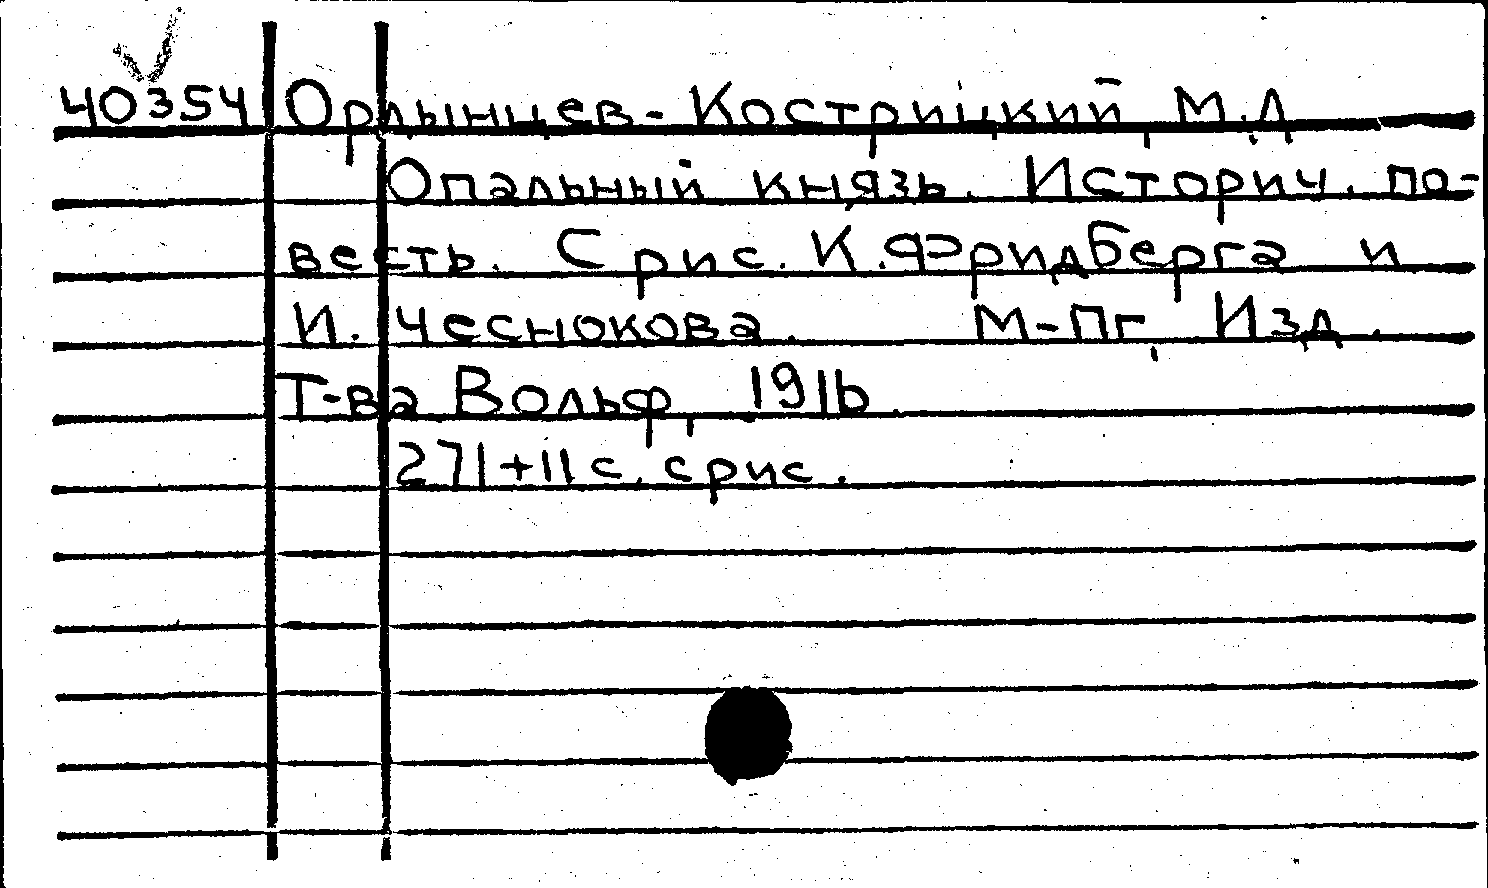 40354 Орлынцев-Кострицкий, М.Д
Опальный князь. Историч. по-
весть. С рис. К.Фридберга и
И. Чеснокова. М-Пг, Изд.
Т-ва Вольф, 1916
271+II с. с рис.